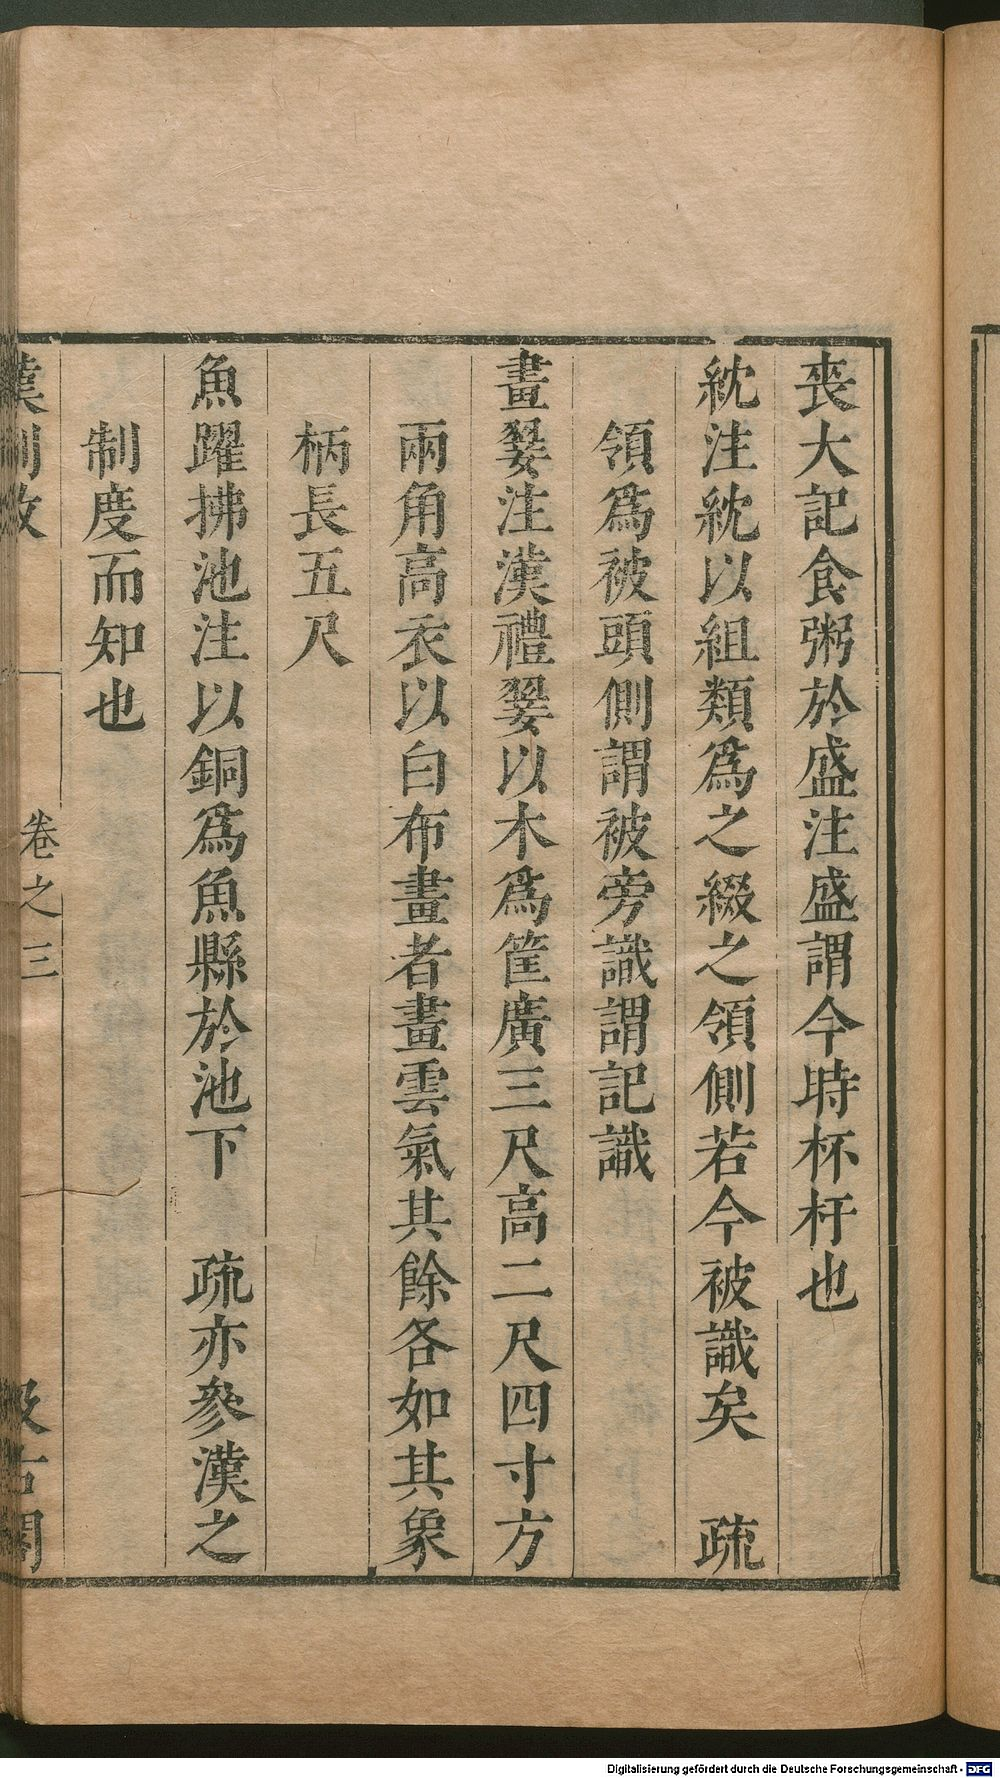 喪大記食粥於盛注盛謂今時杯杅也
紞注紞以組類爲之綴之領側若今被識矣 疏
領爲被頭側謂被旁識謂記識
畫翣注漢禮翣以木爲筐廣三尺高二尺四寸方
兩角高衣以白布畫者畫雲氣其餘各如其象
柄長五尺
魚躍拂池注以銅爲魚縣於池下 疏亦參漢之
制度而知也
漢制攷 卷之三 汲古閣
Digitalisierung gefördert durch die Deutsche Forschungsgemeinschaft - DFG